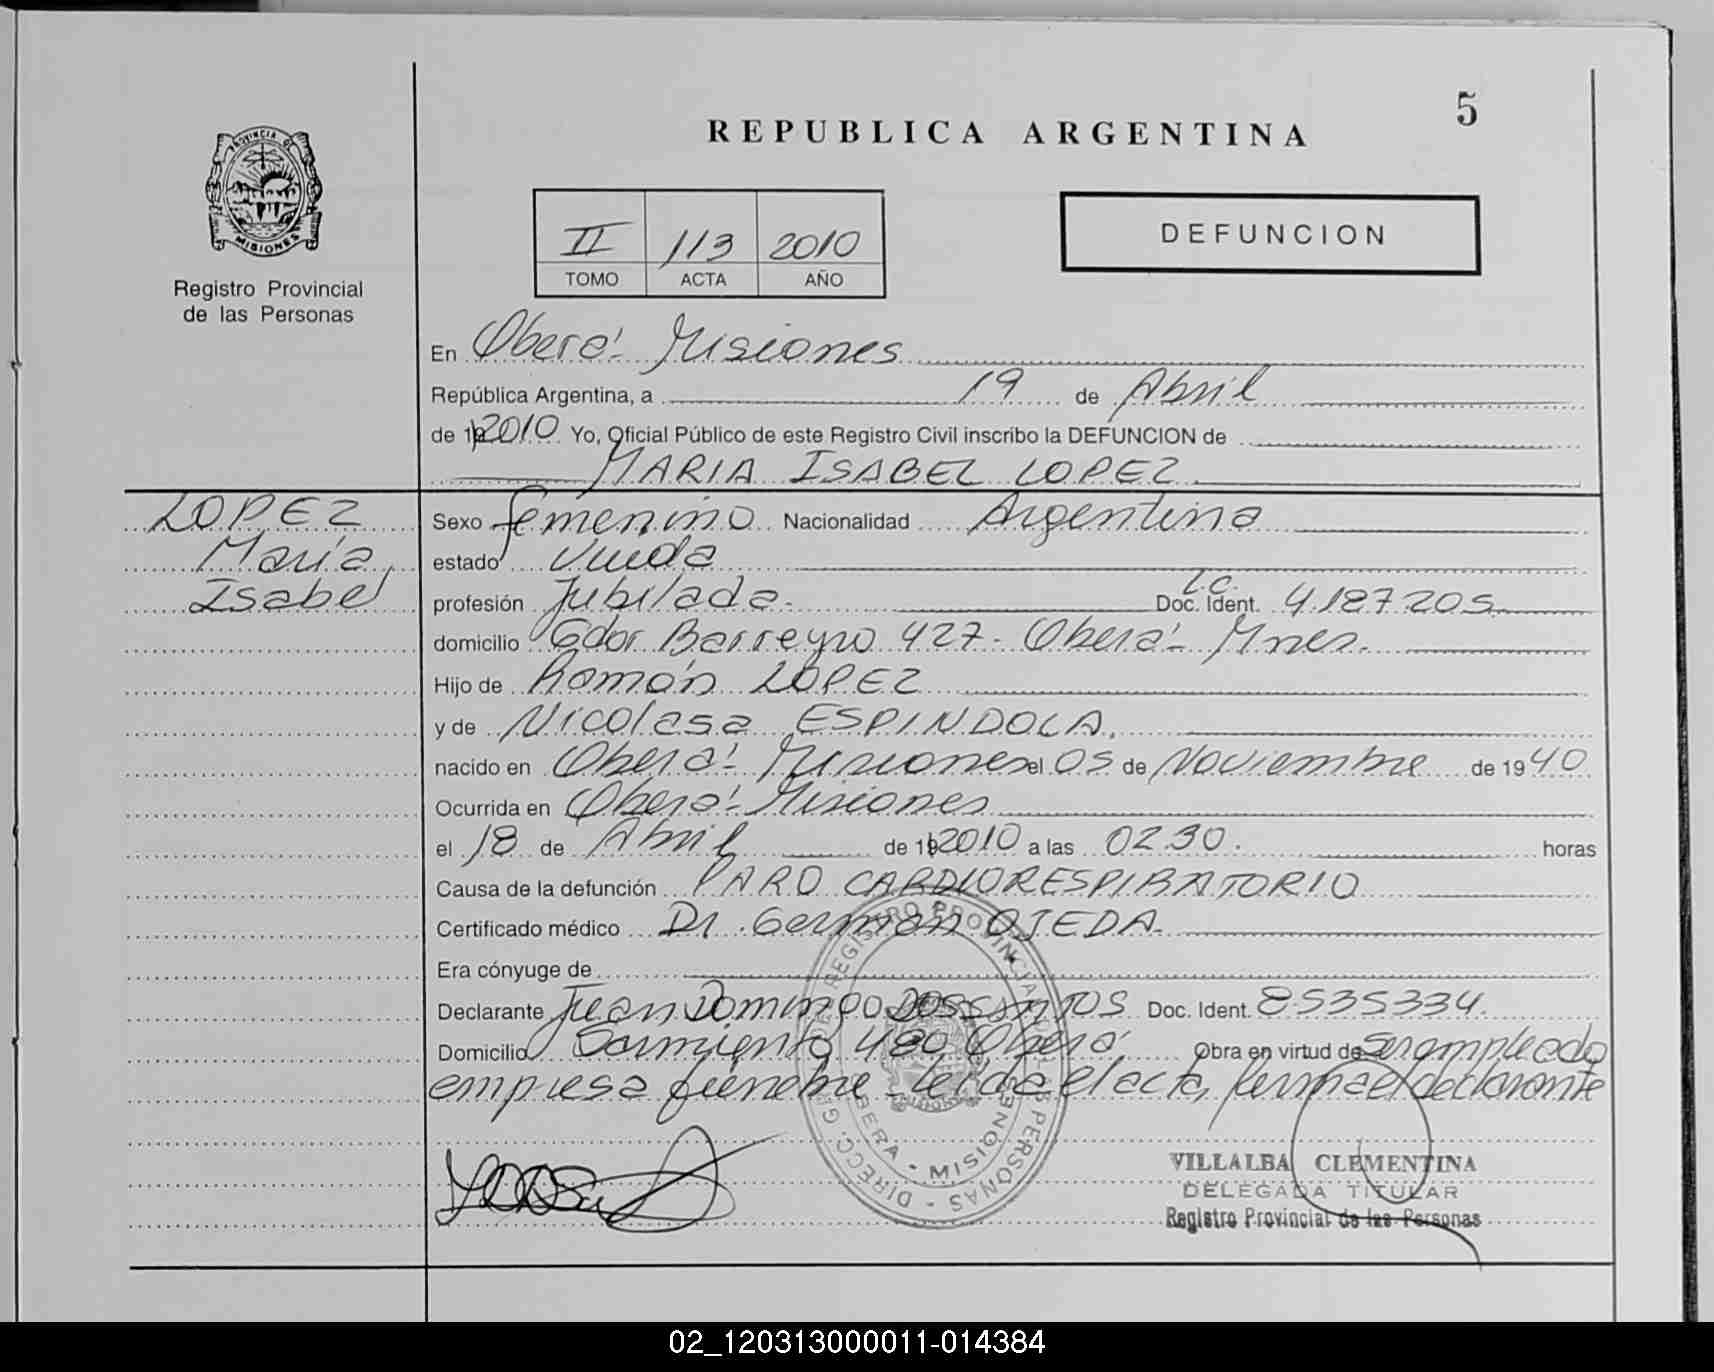 5
REPUBLICA ARGENTINA
PROVINCIA DE
MISIONES
Registro Provincial
de las Personas
II 113 2010
TOMO ACTA AÑO
DEFUNCION
En Oberá- Misiones
República Argentina, a 19 de Abril
de 19 2010 Yo, Oficial Público de este Registro Civil inscribo la DEFUNCION de
MARIA ISABEL LOPEZ
LOPEZ
María
Isabel
Sexo femenino Nacionalidad Argentina
estado Viuda
profesión Jubilada- Doc. Ident. L.C. 4.187.205
domicilio Gdor Barreyro 427- Oberá- Mnes.
Hijo de Ramón LOPEZ
y de Nicolasa ESPINDOLA.
nacido en Oberá- Misiones el 05 de Noviembre de 1940
Ocurrida en Oberá- Misiones
el 18 de Abril de 19 2010 a las 02.30. horas
Causa de la defunción PARO CARDIORESPIRATORIO
Certificado médico Dr. German OJEDA
Era cónyuge de
Declarante Juan Domingo DOS SANTOS Doc. Ident. 8535334.
Domicilio Sarmiento 480 Oberá Obra en virtud de Ser empleado
empresa fúnebre - Leída el acta, firma el declarante
DIRECC. GRAL. DE REGISTRO PROVINCIAL DE LAS PERSONAS
OBERA - MISIONES
VILLALBA CLEMENTINA
DELEGADA TITULAR
Registro Provincial de las Personas
02_120313000011-014384